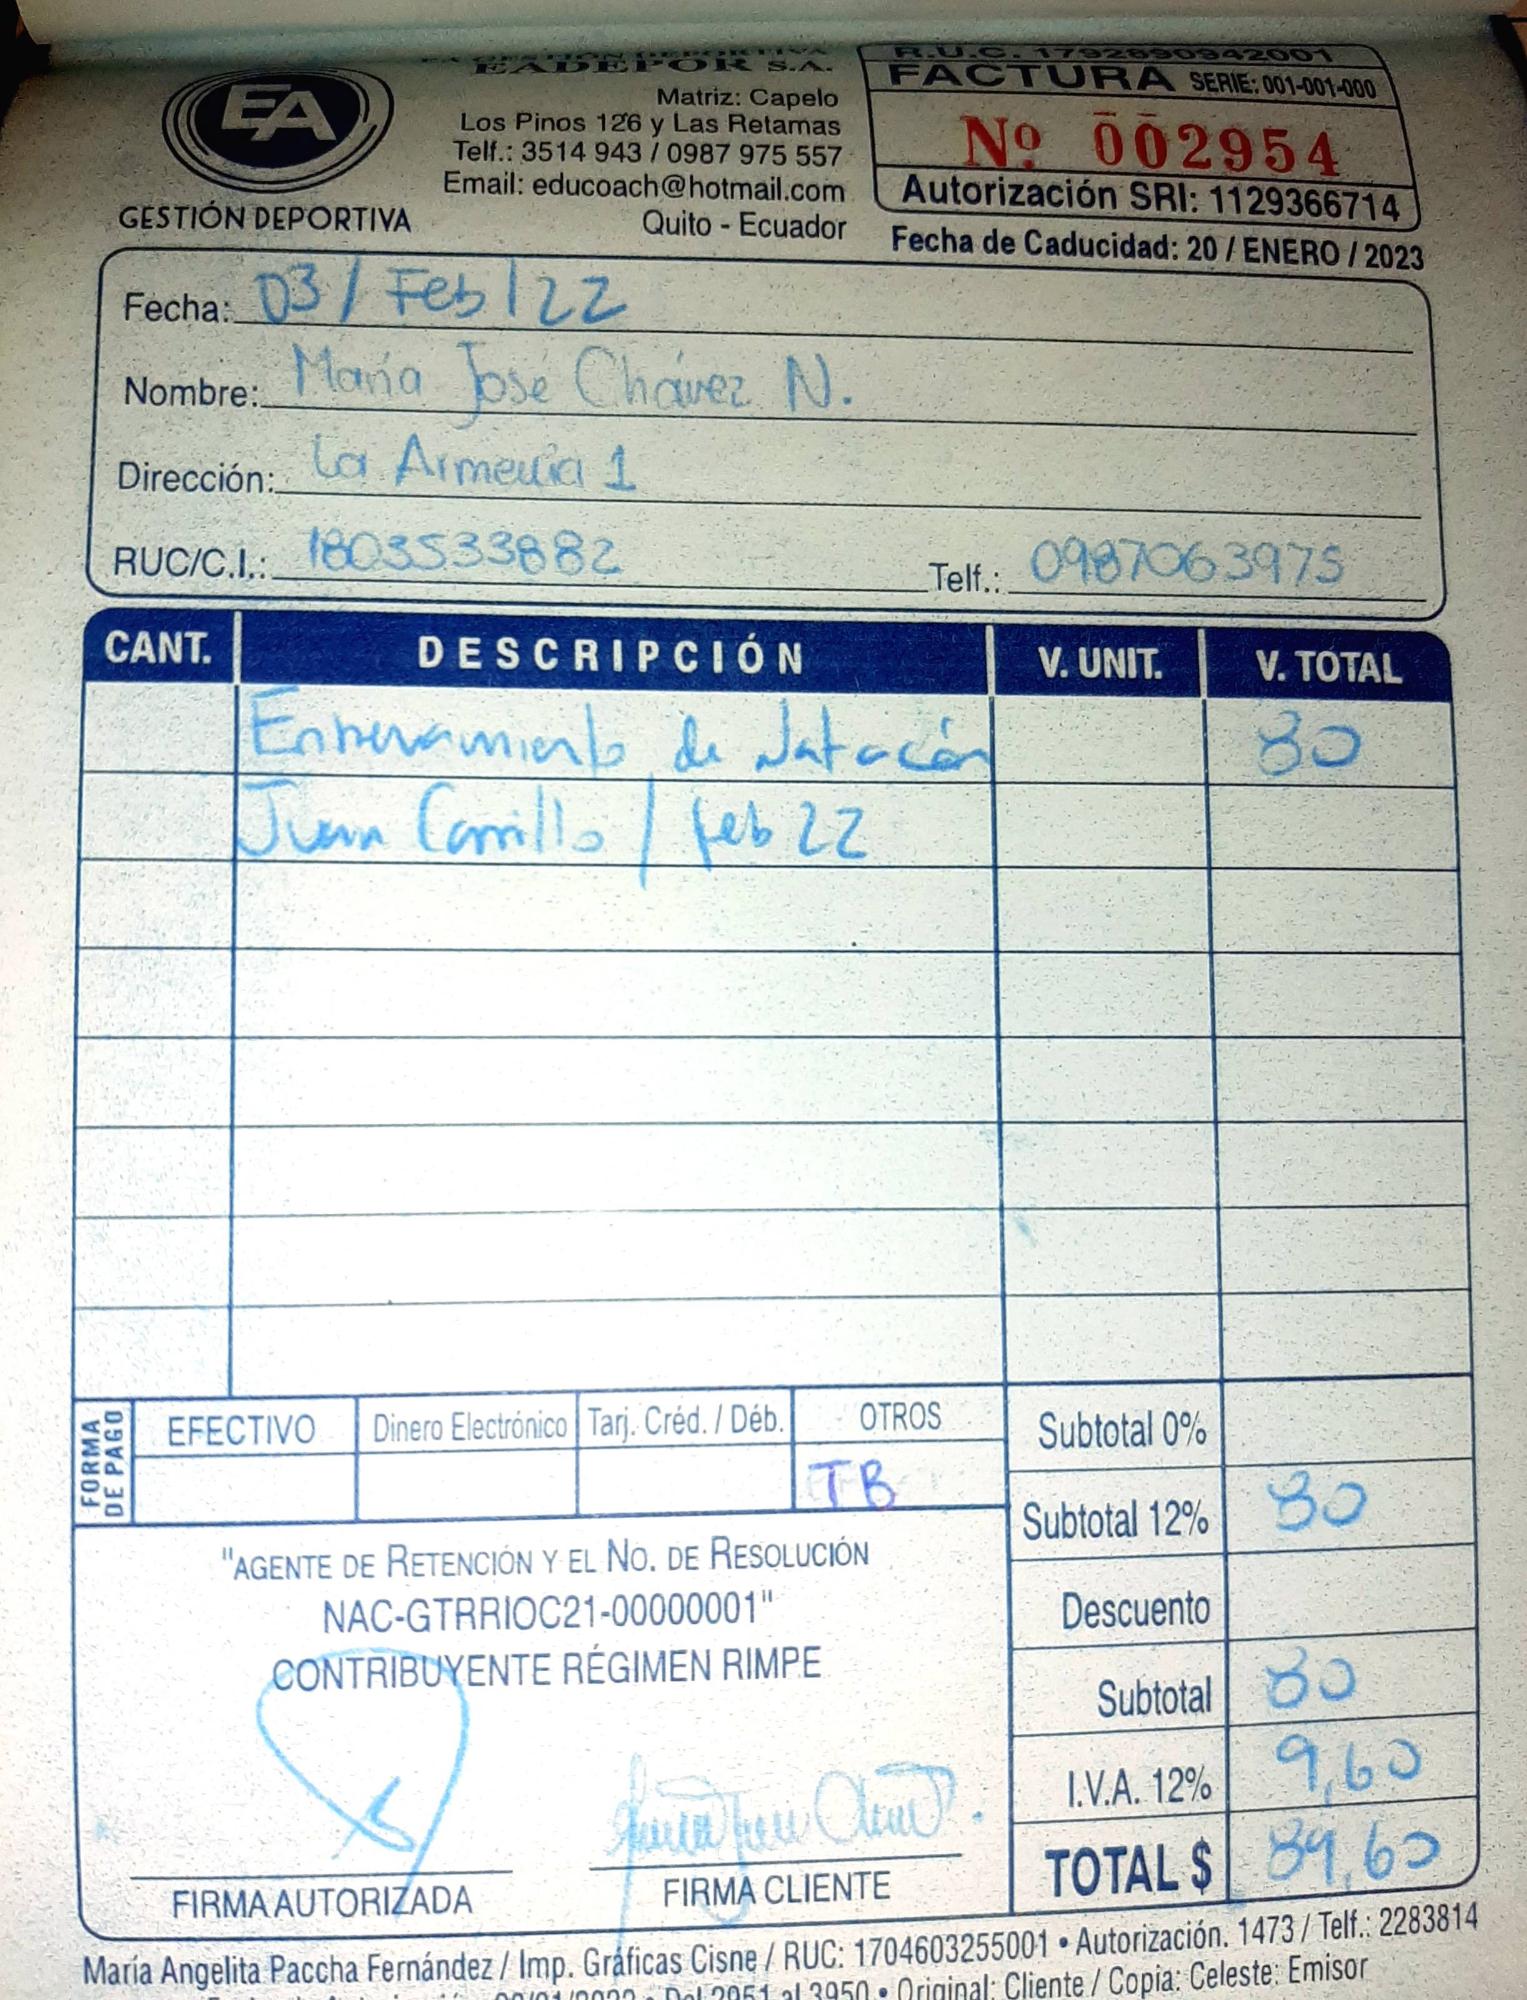 EA
GESTIÓN DEPORTIVA
GESTIÓN DEPORTIVA
EADEPOR S.A.
Matriz: Capelo
Los Pinos 126 y Las Retamas
Telf.: 3514 943 / 0987 975 557
Email: educoach@hotmail.com
Quito - Ecuador
R.U.C. 1792890942001
FACTURA SERIE: 001-001-000
Nº 002954
Autorización SRI: 1129366714
Fecha de Caducidad: 20 / ENERO / 2023
Fecha: 03 / Feb / 22
Nombre: María José Chávez N.
Dirección: La Armenia 1
RUC/C.I.: 1803533882 Telf.: 0987063975
CANT. DESCRIPCIÓN V. UNIT. V. TOTAL
Entrenamiento de Natación 80
Juan Carrillo / feb 22
FORMA DE PAGO EFECTIVO Dinero Electrónico Tarj. Créd. / Déb. OTROS
TB
Subtotal 0%
Subtotal 12% 80
Descuento
Subtotal 80
I.V.A. 12% 9,60
TOTAL $ 89,60
"AGENTE DE RETENCIÓN Y EL NO. DE RESOLUCIÓN
NAC-GTRRIOC21-00000001"
CONTRIBUYENTE RÉGIMEN RIMPE
FIRMA AUTORIZADA FIRMA CLIENTE
María Angelita Paccha Fernández / Imp. Gráficas Cisne / RUC: 1704603255001 • Autorización. 1473 / Telf.: 2283814
Del 2951 al 3950 • Original: Cliente / Copia: Celeste: Emisor